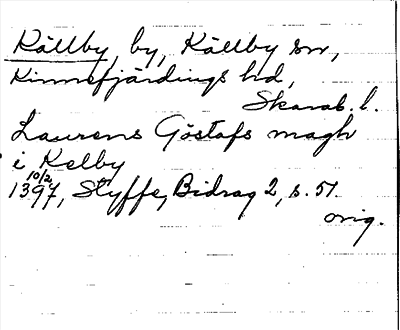 Källby, by, Källby sn,
Kinnefjärdings hd,
Skarab. l.
Laurens Göstafs magh
i Kelby
10/2
1397, Styffe, Bidrag 2, s. 57.
orig.